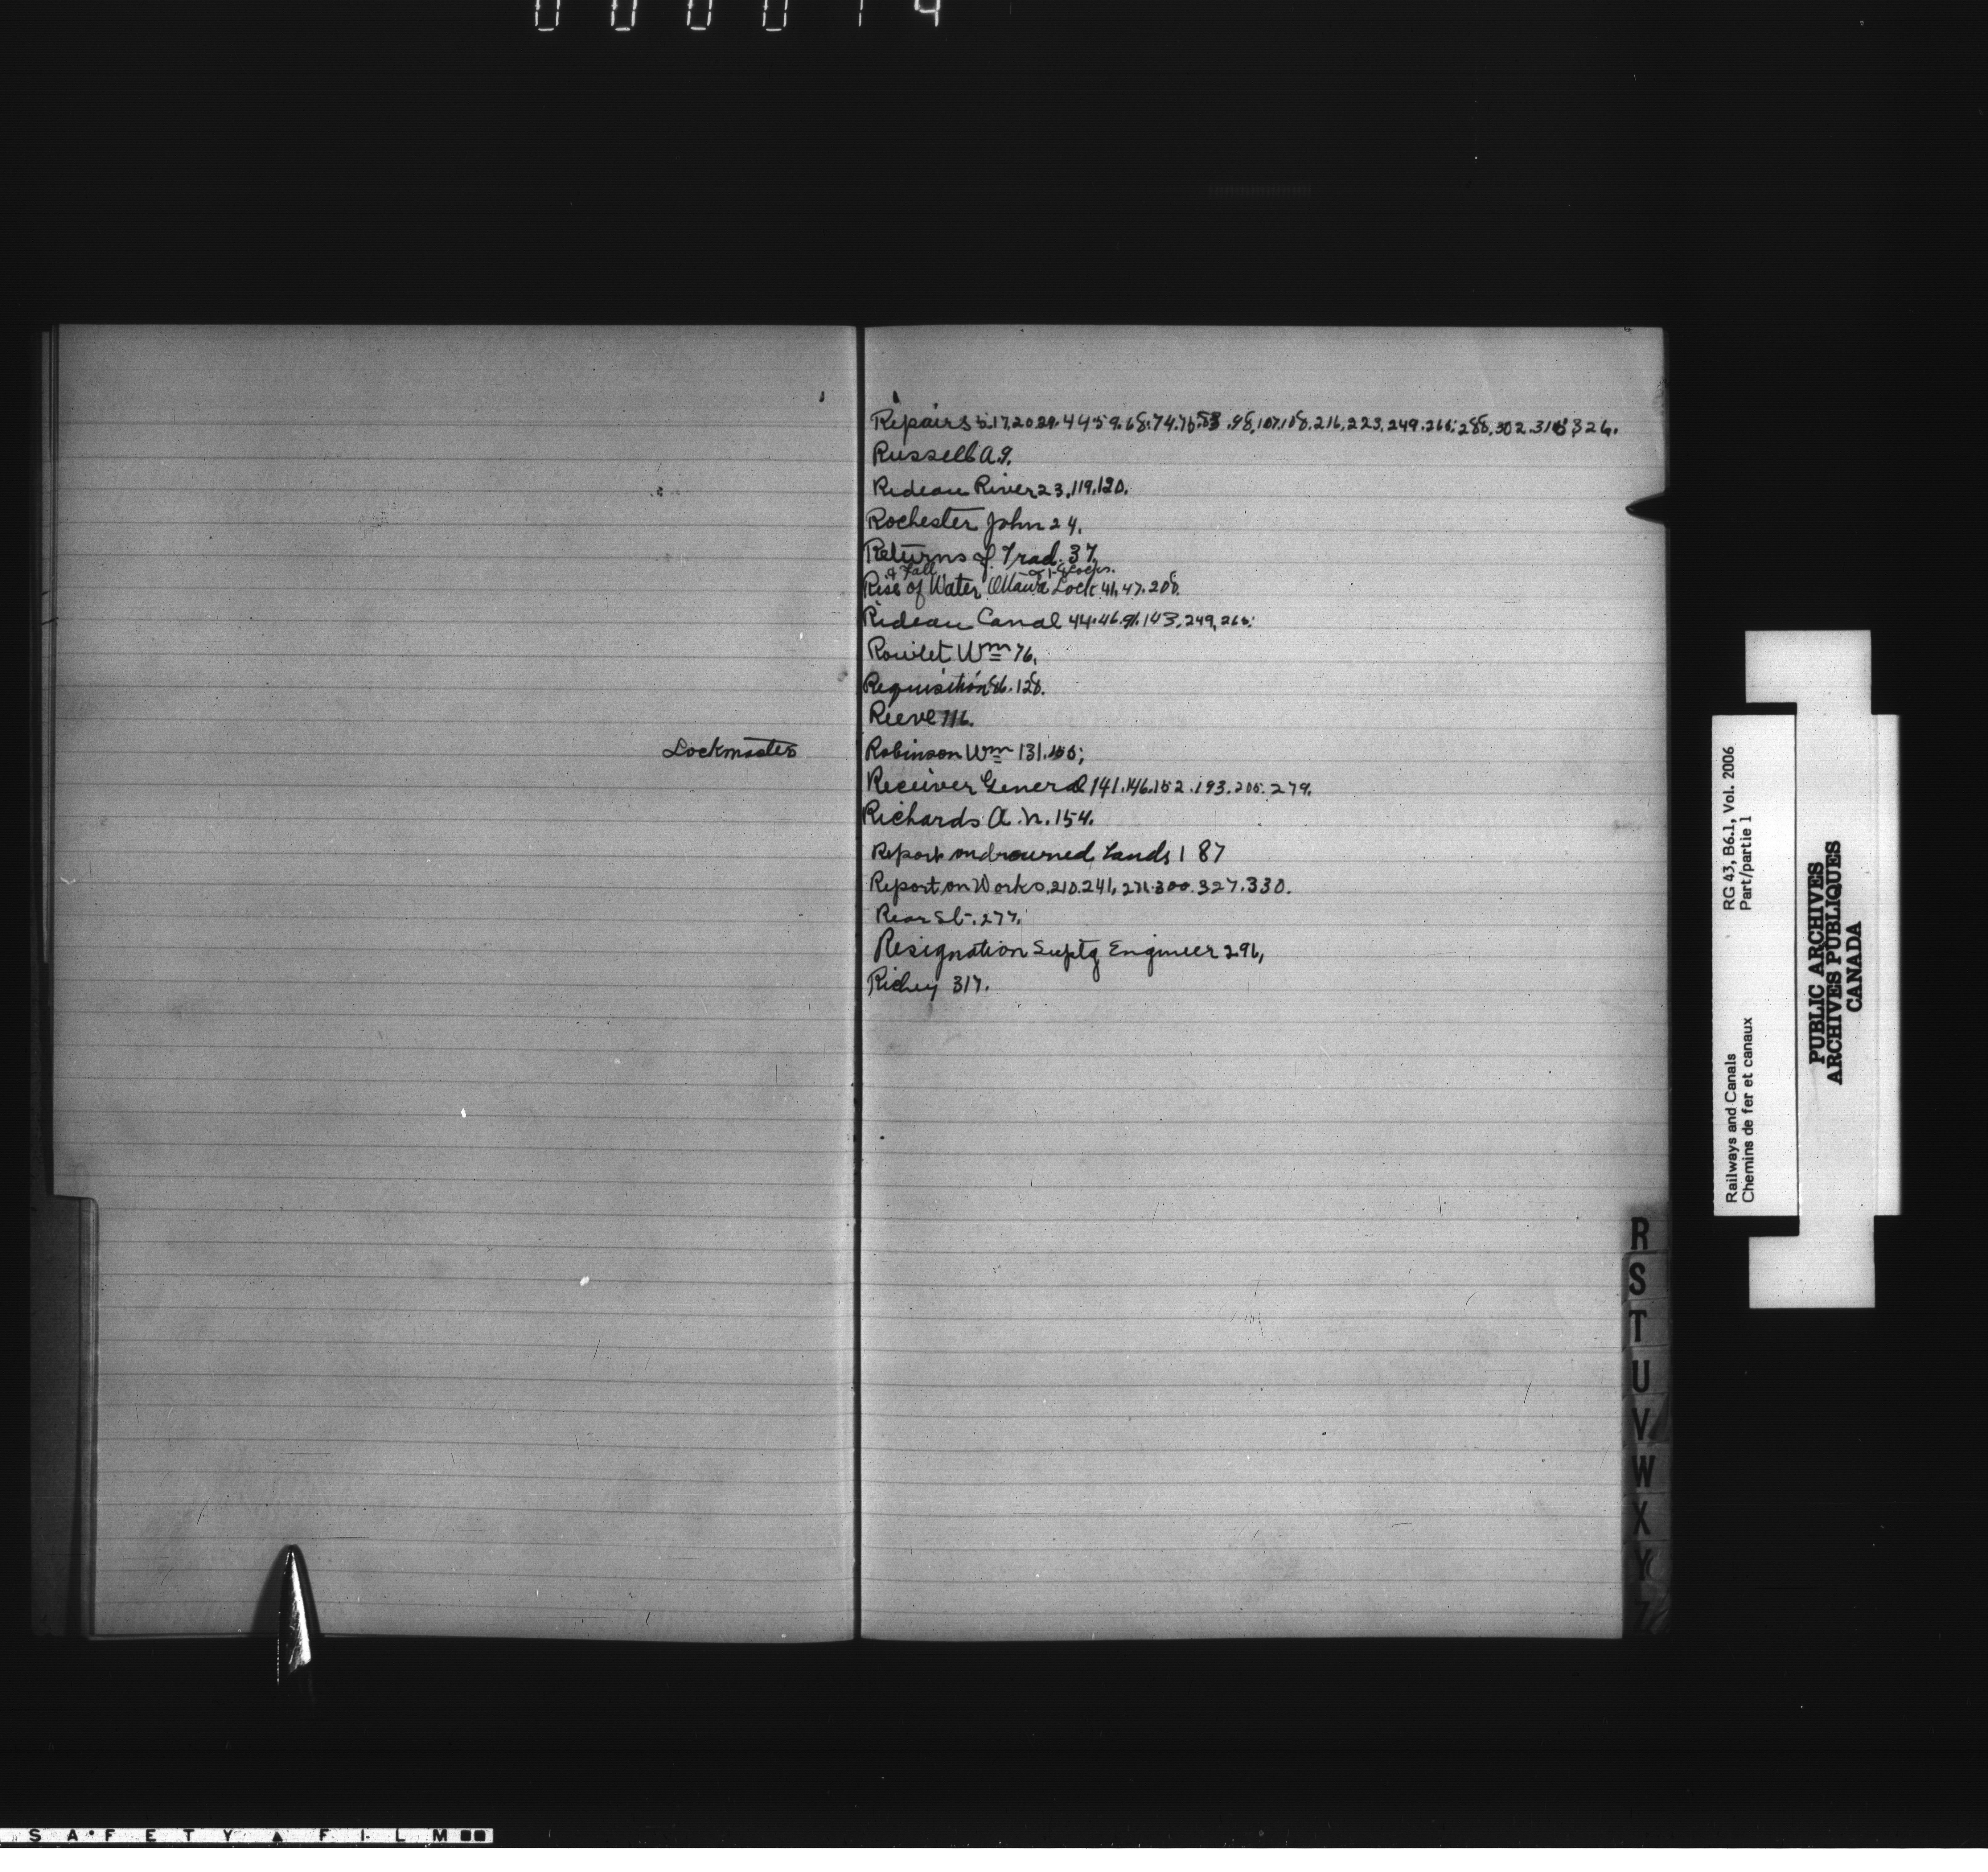 000014
Repairs 5.17.20.29.44.59.68.74.76.83.98.107.108.216.223.249.265.288.302.315.326.
Russell A. 9.
Rideau River 23.119.120.
Rochester John 24.
Returns of Trad. 37.
& Fall
Rise of Water Ottawa Lock 41.47.208.
Rideau Canal 44.46.91.143.249.265.
Rowlet Wm 76.
Requisition 86.128.
Reeve 116.
Lockmaster Robinson Wm 131.155;
Receiver General 141.146.152.193.205.279.
Richards A.N. 154.
Report on drowned Lands 187
Report on Works 210.241.271.300.327.330.
Rear St. 277.
Resignation Suptg Engineer 291,
Richey 317.
R
S
T
U
V
W
X
Y
Z
Railways and Canals RG 43, B6.1, Vol. 2006
Chemins de fer et canaux Part/partie 1
PUBLIC ARCHIVES
ARCHIVES PUBLIQUES
CANADA
SAFETY FILM